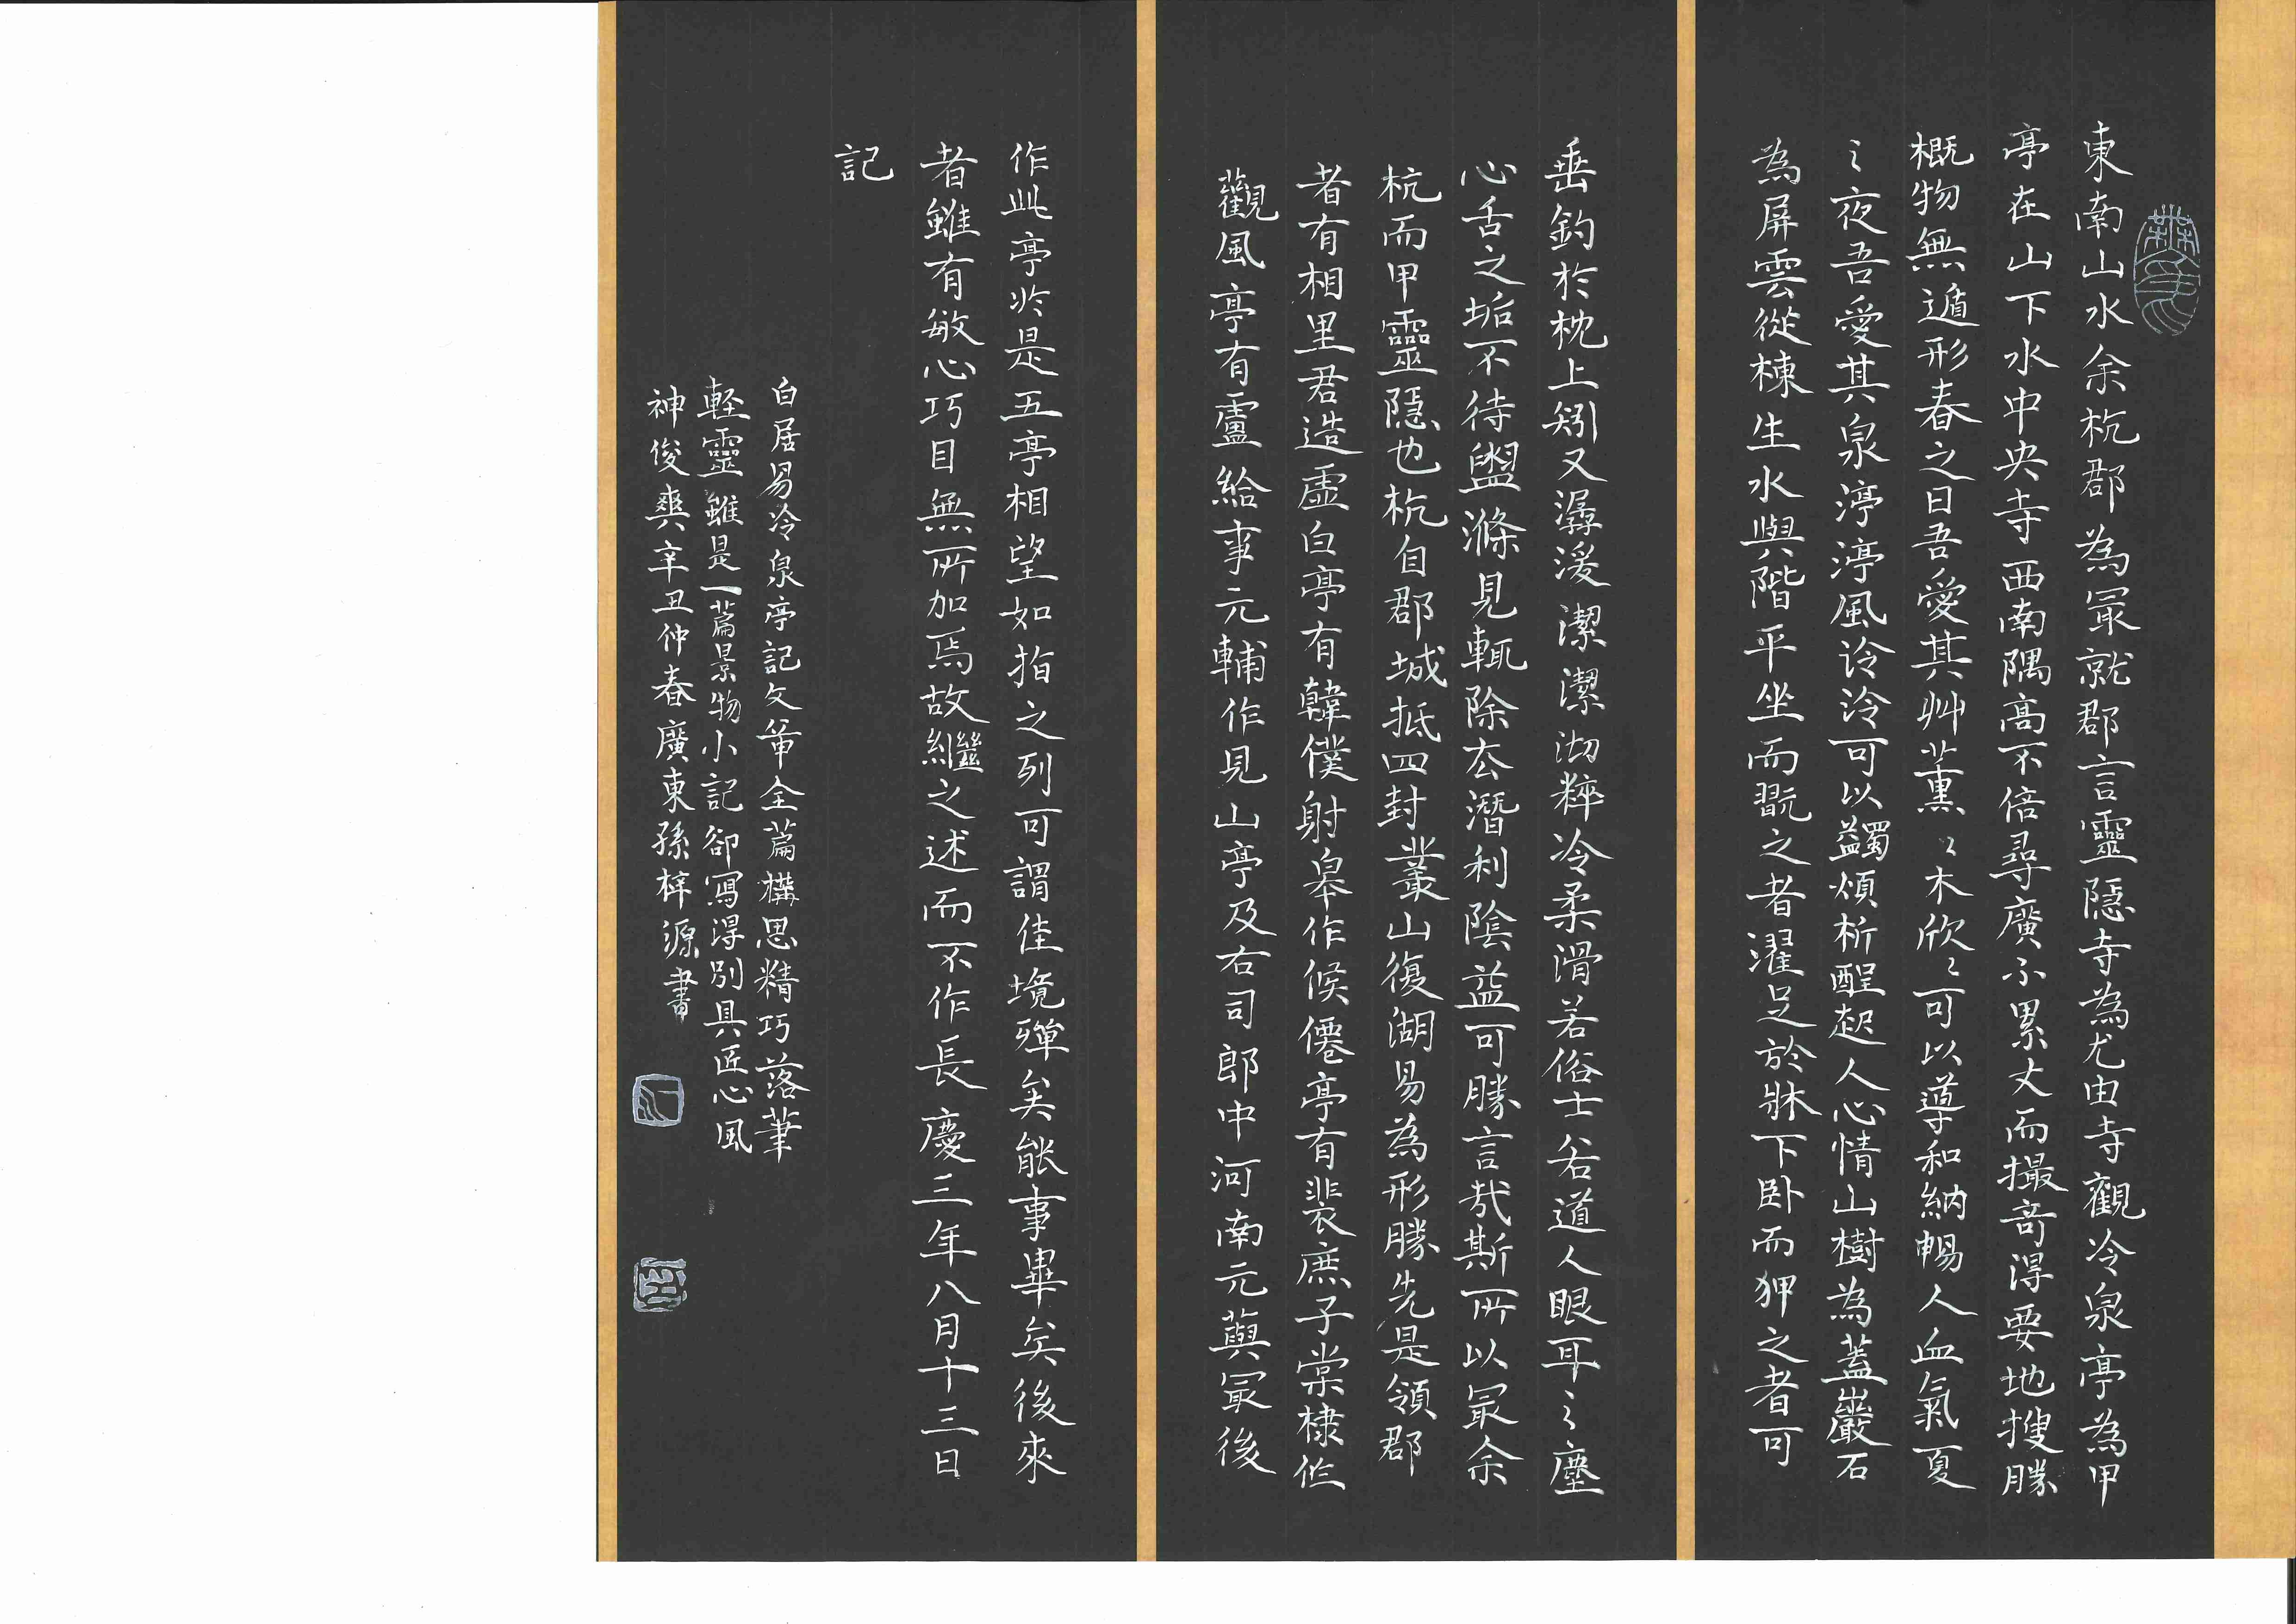 東南山水余杭郡為冣就郡言靈隱寺為尤由寺觀冷泉亭為甲
亭在山下水中央寺西南隅高不倍尋廣不累丈而撮奇得要地搜勝
概物無遁形春之日吾愛其艸薰〻木欣〻可以導和納暢人血氣夏
〻夜吾愛其泉渟渟風泠泠可以蠲煩析酲起人心情山樹為蓋巖石
為屏雲從棟生水與階平坐而翫之者濯足於牀下卧而狎之者可
垂釣於枕上矧又潺湲潔潔沏粹冷柔滑若俗士若道人眼耳〻塵
心舌之垢不待盥滌見輒除去潛利陰益可勝言哉斯所以冣余
杭而甲靈隱也杭自郡城抵四封叢山復湖易為形勝先是領郡
者有相里君造虛白亭有韓僕射皋作候僊亭有裴庶子棠棣作
觀風亭有盧給事元輔作見山亭及右司郎中河南元藇冣後
作此亭於是五亭相望如指之列可謂佳境殫矣能事畢矣後來
者雖有敏心巧目無所加焉故繼之述而不作長慶三年八月十三日
記
白居易冷泉亭記文筆全篇構思精巧落筆
輕靈雖是一篇景物小記卻寫得別具匠心風
神俊爽辛丑仲春廣東孫梓源書